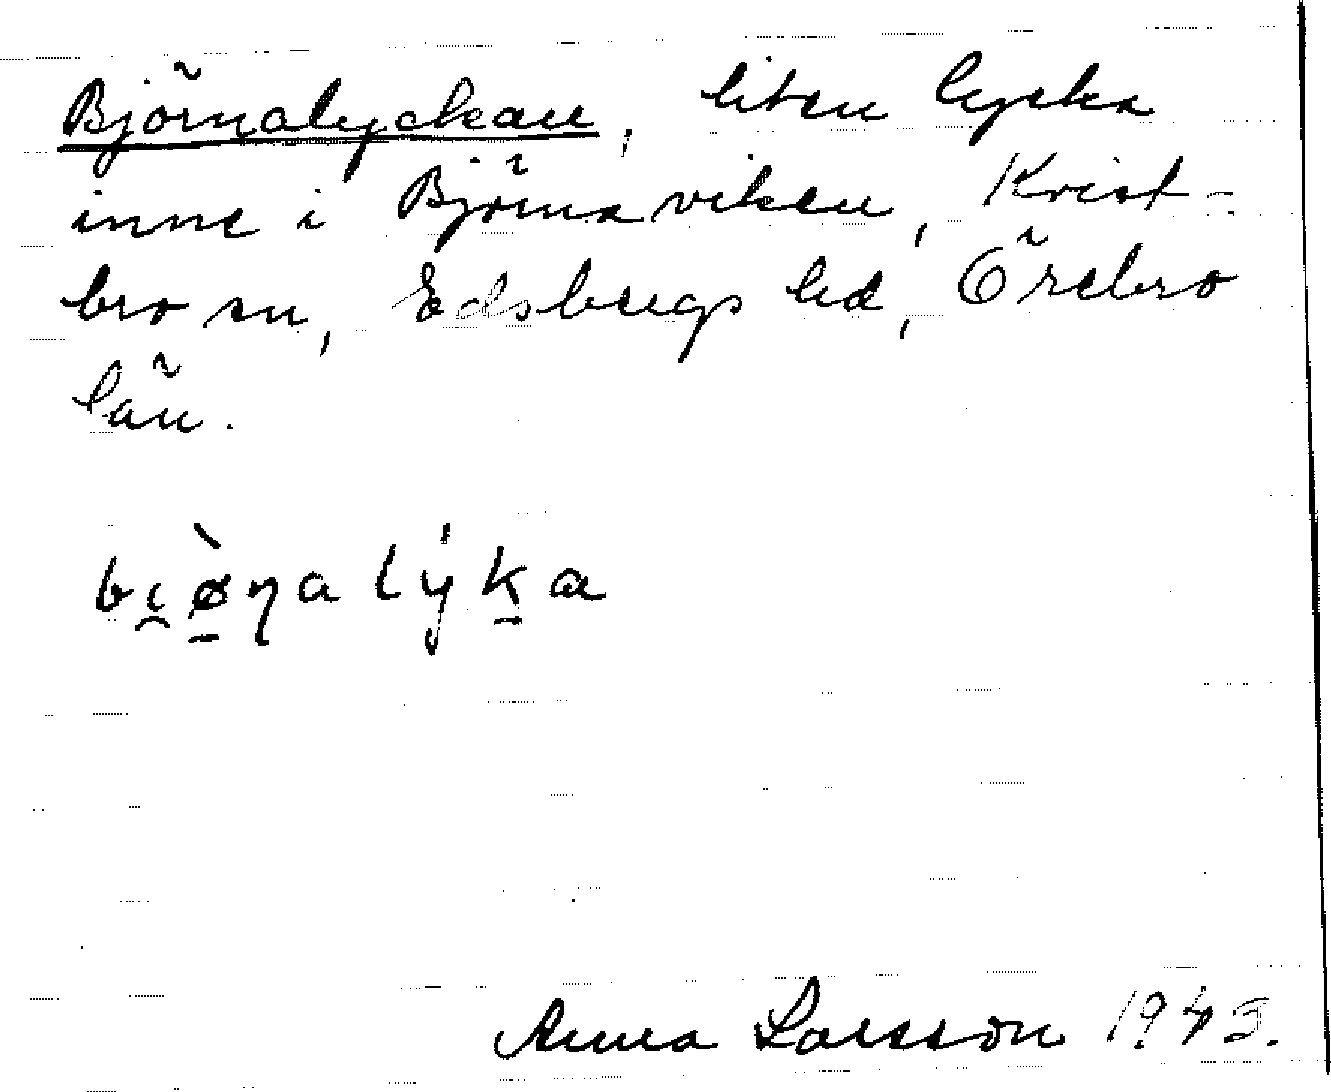 Björnalyckan, liten lycka
inne i Björnaviken, Krist-
bro sn, Edsbergs hd, Örebro
län.
bi̯ø̱̀ɳa lýḵa
Anna Larsson 1943.